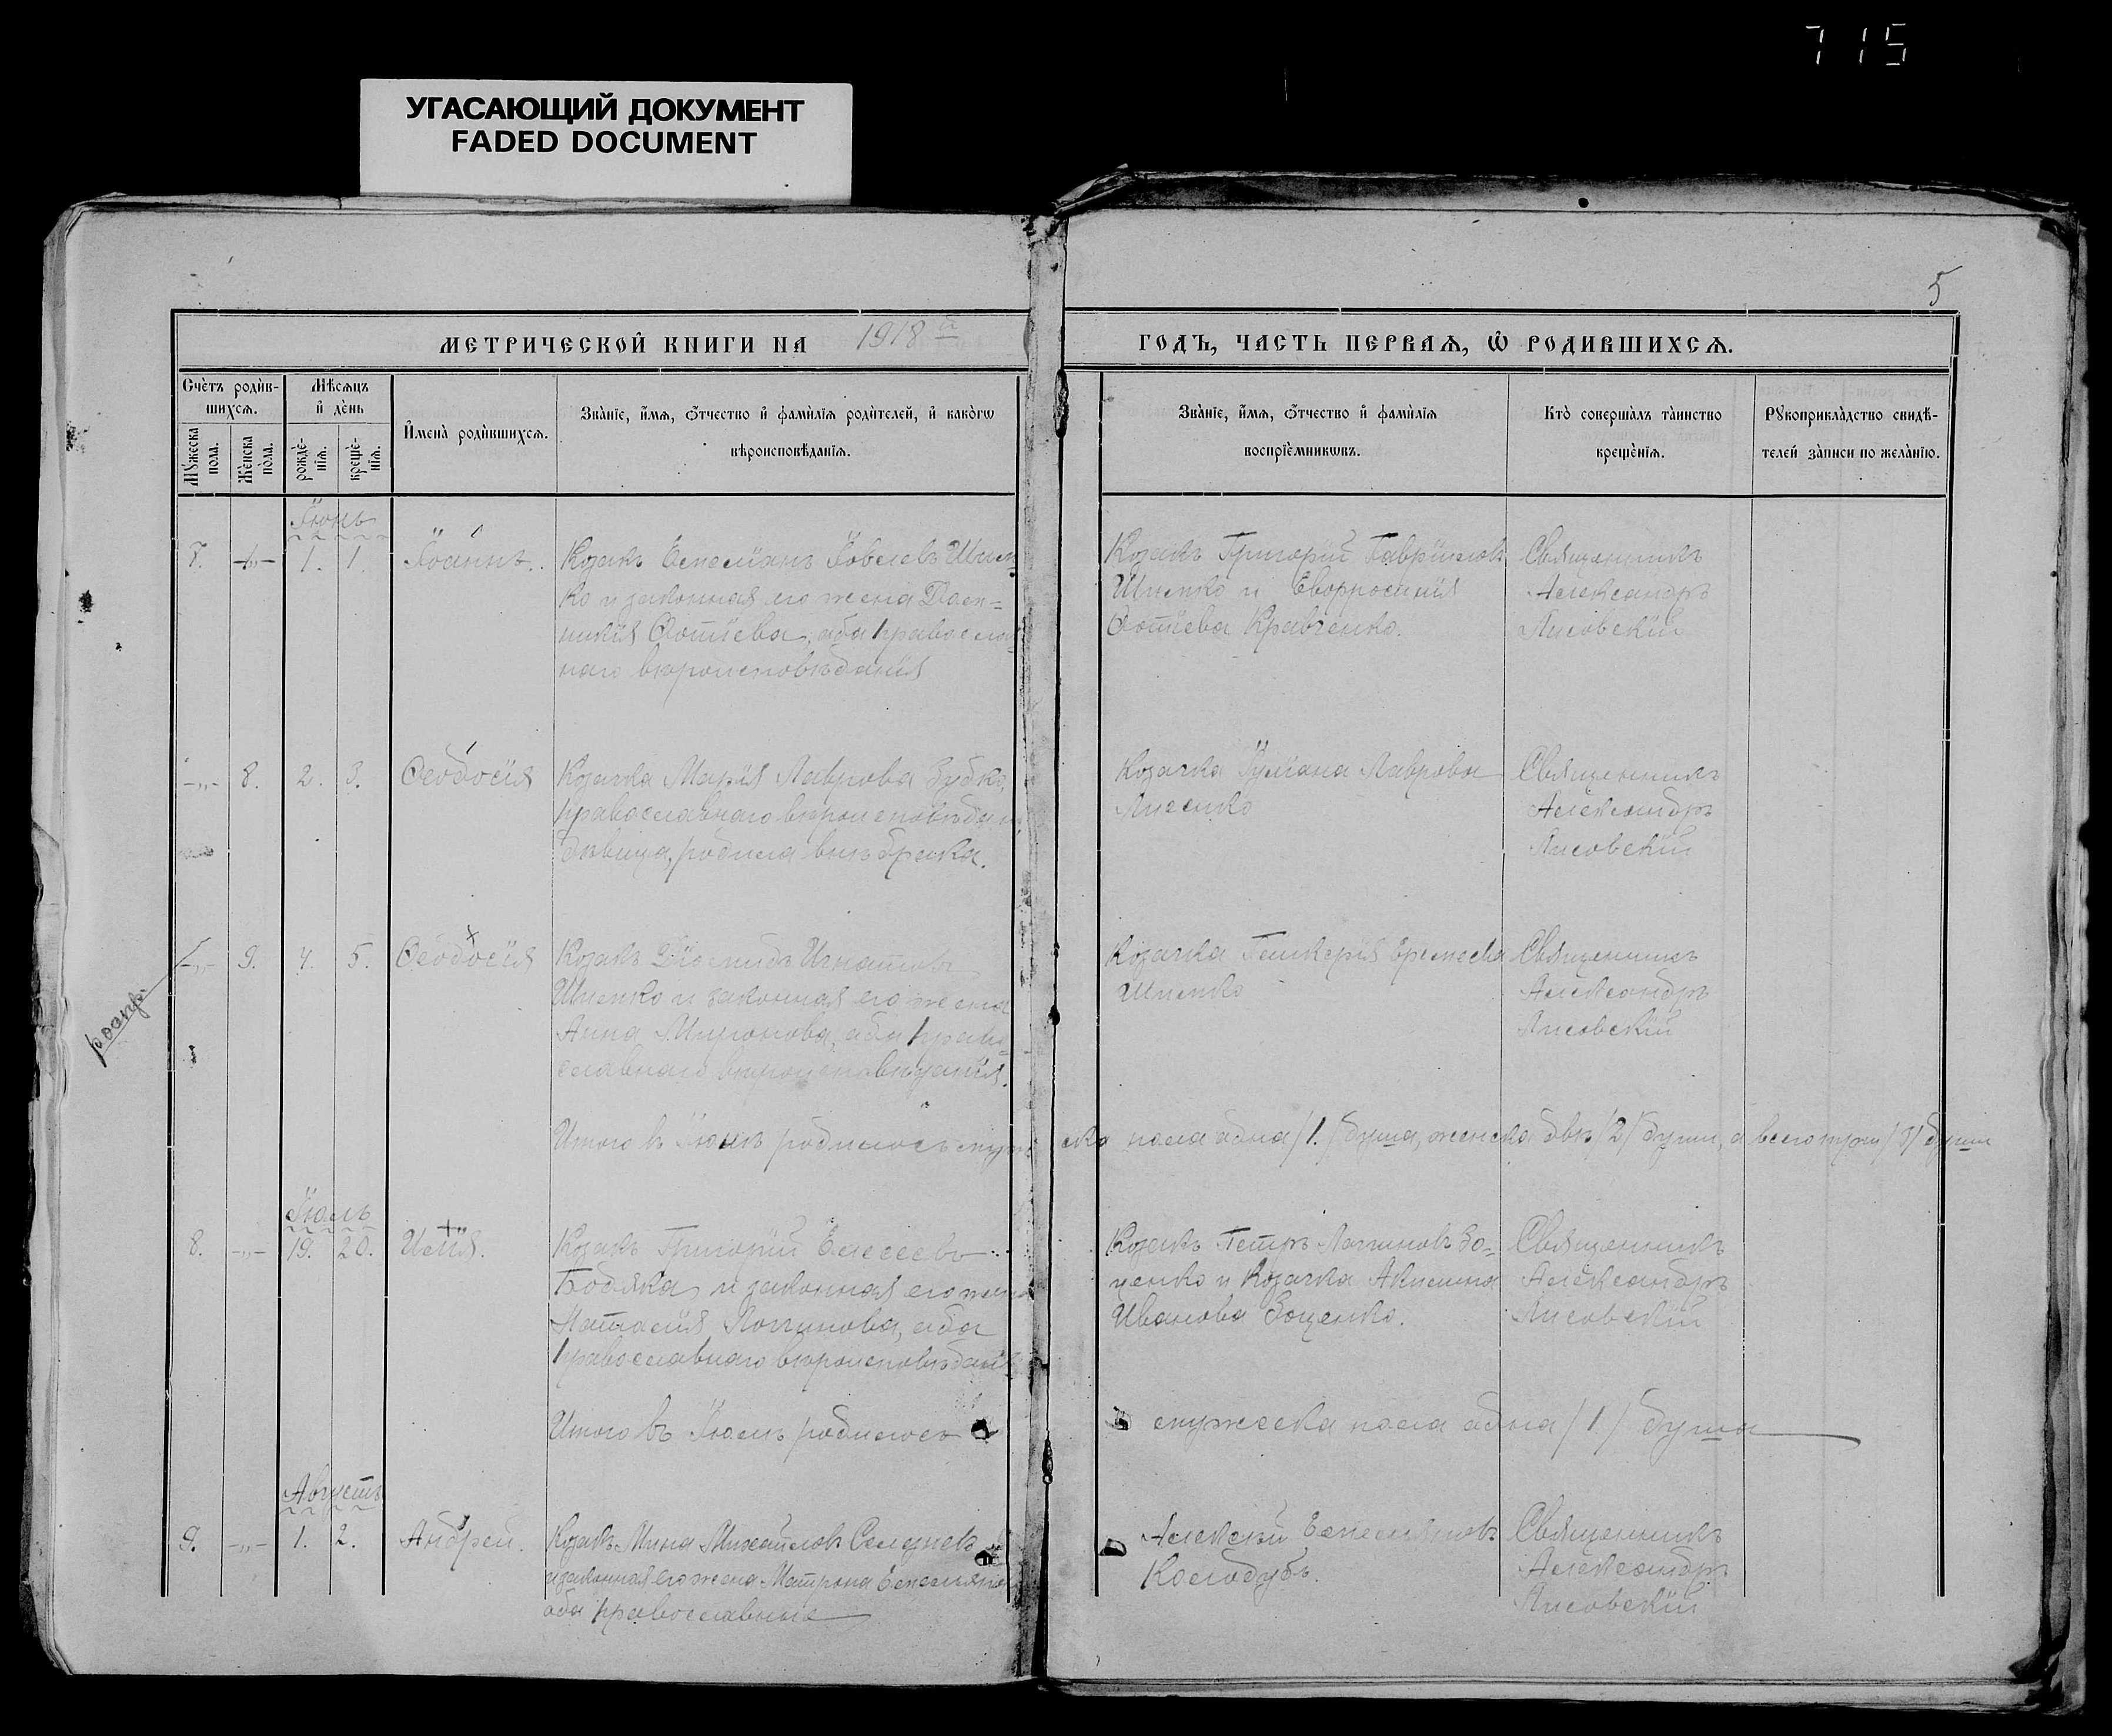 715
УГАСАЮЩИЙ ДОКУМЕНТ
FADED DOCUMENT
5
МЕТРИЧЕСКОЙ КНИГИ НА 1918 й ГОДЪ, ЧАСТЬ ПЕРВАЯ, Ѿ РОДИВШИХСЯ.
Счетъ родив-
шихся.
Мѣсяцъ
и день
Мужеска пола.
Женска пола.
рожде-
нія.
креще-
нія.
Имена родившихся.
Званіе, имя, отчество и фамилія родителей, и какогѡ
вѣроисповѣданія.
Званіе, имя, отчество и фамилія
воспріемникѡвъ.
Кто совершалъ таинство
крещенія.
Рукоприкладство свидѣ-
телей записи по желанію.
Іюнь
7. -„- 1. 1. Іоаннъ. Козакъ Емеліанъ Іовлевъ
ко и законная его жена
Фотіева, оба православ
наго вѣроисповѣданія
Козакъ Григорій Гавріиловъ
Шпенко и Евфросинія
Фотіева Кравченко.
Священникъ
Александръ
Лисовскій
-„- 8. 2. 3. Феодосія Козачка Марія Лаврова Зубко,
православнаго вѣроисповѣдан
дѣвица, родила внѣ брака.
Козачка Іуліана Лаврова
Священникъ
Александръ
Лисовскій
роспр.
-„- 9. 4. 5. Феодосія Козакъ Діомидъ Игнатовъ
Шпенко и законная его жена
Анна Миронова, оба право
славнаго вѣроисповѣданія.
Козачка Гликерія Еремеева
Шпенко
Священникъ
Александръ
Лисовскій
Итого въ Іюнѣ родилось муже ска пола одна /1/ душа, женска двѣ /2/ души, а всего три /3/ души
Іюль
8. -„- 19. 20. Илія. Козакъ Григорій Елесеевъ
Бодяка и законная его жена
Наталія Логинова, оба
православнаго вѣроисповѣданія
Козакъ Петръ Логиновъ Зо-
ценко и Козачка Акилина
Иванова Зоценко.
Священникъ
Александръ
Лисовскій
Итого въ Іюлѣ родилось мужеска пола одна /1/ душа
Августъ
9. -„- 1. 2. Андрей. Козакъ Мина Михайловъ Селезнев
и законная его жена Матрона Емельяно
оба православные
Алексѣй Емельяновъ
Колодубъ.
Священникъ
Александръ
Лисовскій